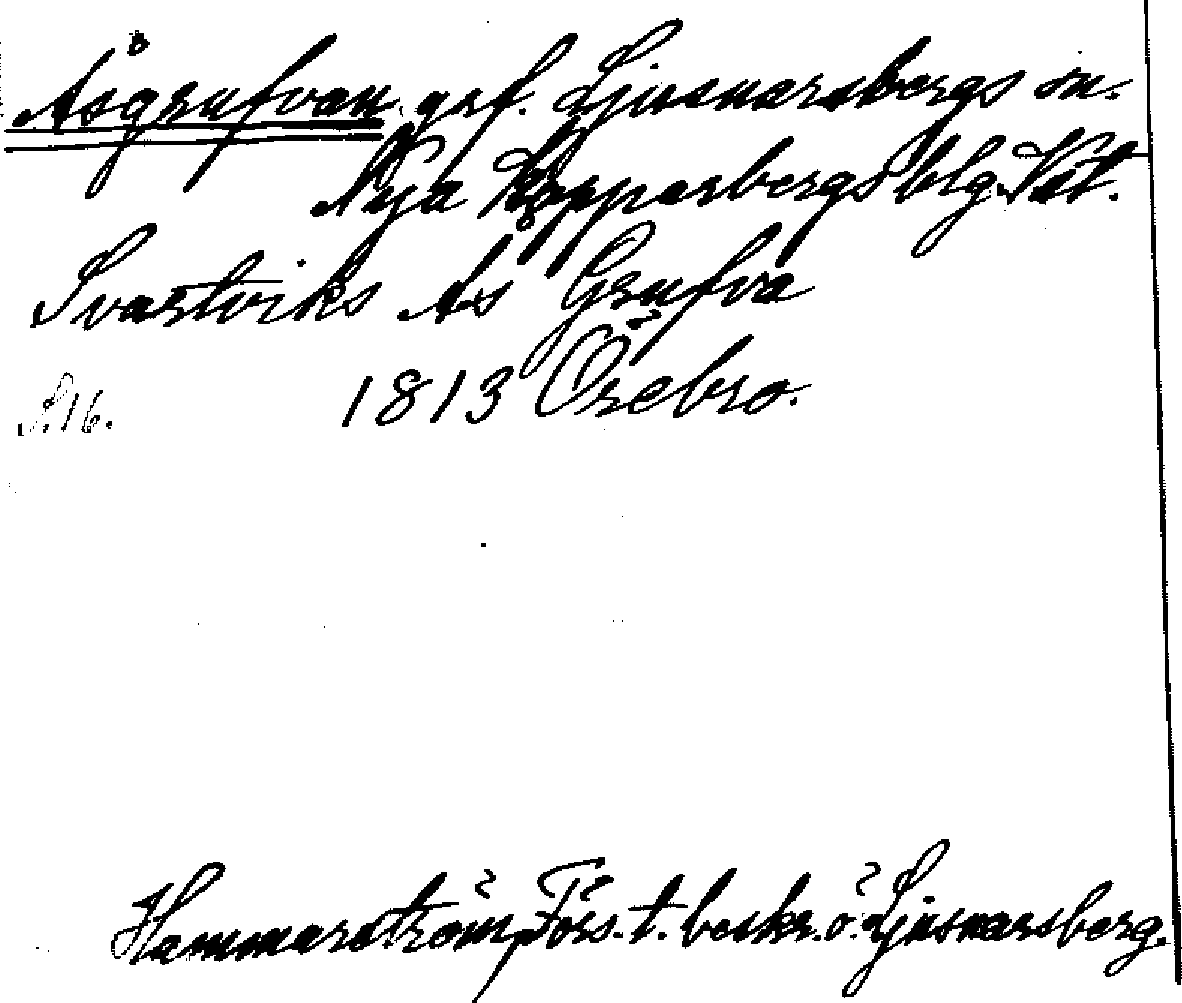 Åsgrufvan grf. Ljusnarsbergs sn.
Nya Kopparbergs blg. Vstl.
Svartviks Ås Grufva
1813 Örebro.
S. 16.
Hammarström, Förs. t. beskr. ö. Ljusnarsberg.